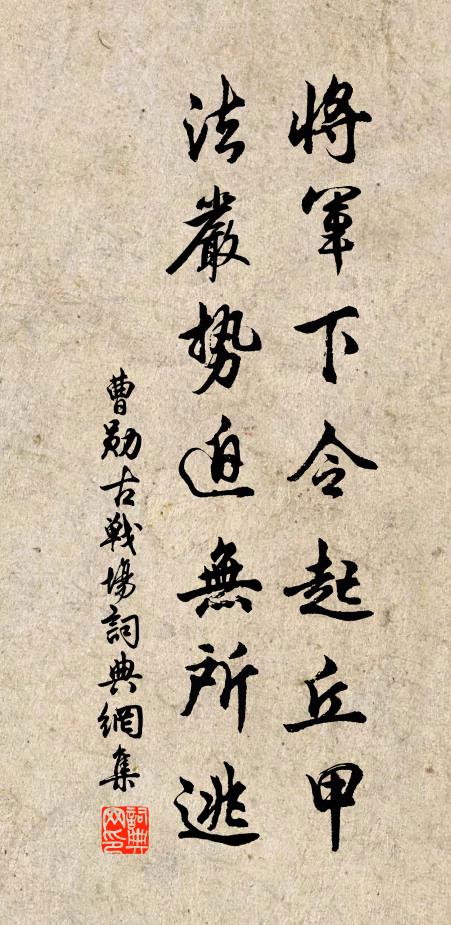 將軍下令起丘甲
法嚴勢迫無所逃
曹勛古戰場詞典網集
詞典網印